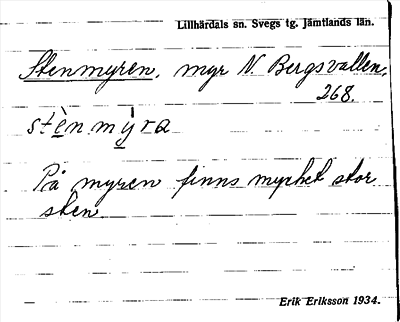 Lillhärdals sn. Svegs tg. Jämtlands län.
Stenmyren, myr N. Bergsvallen,
268.
stènmỳra
På myren finns mycket stor
sten.
Erik Eriksson 1934.